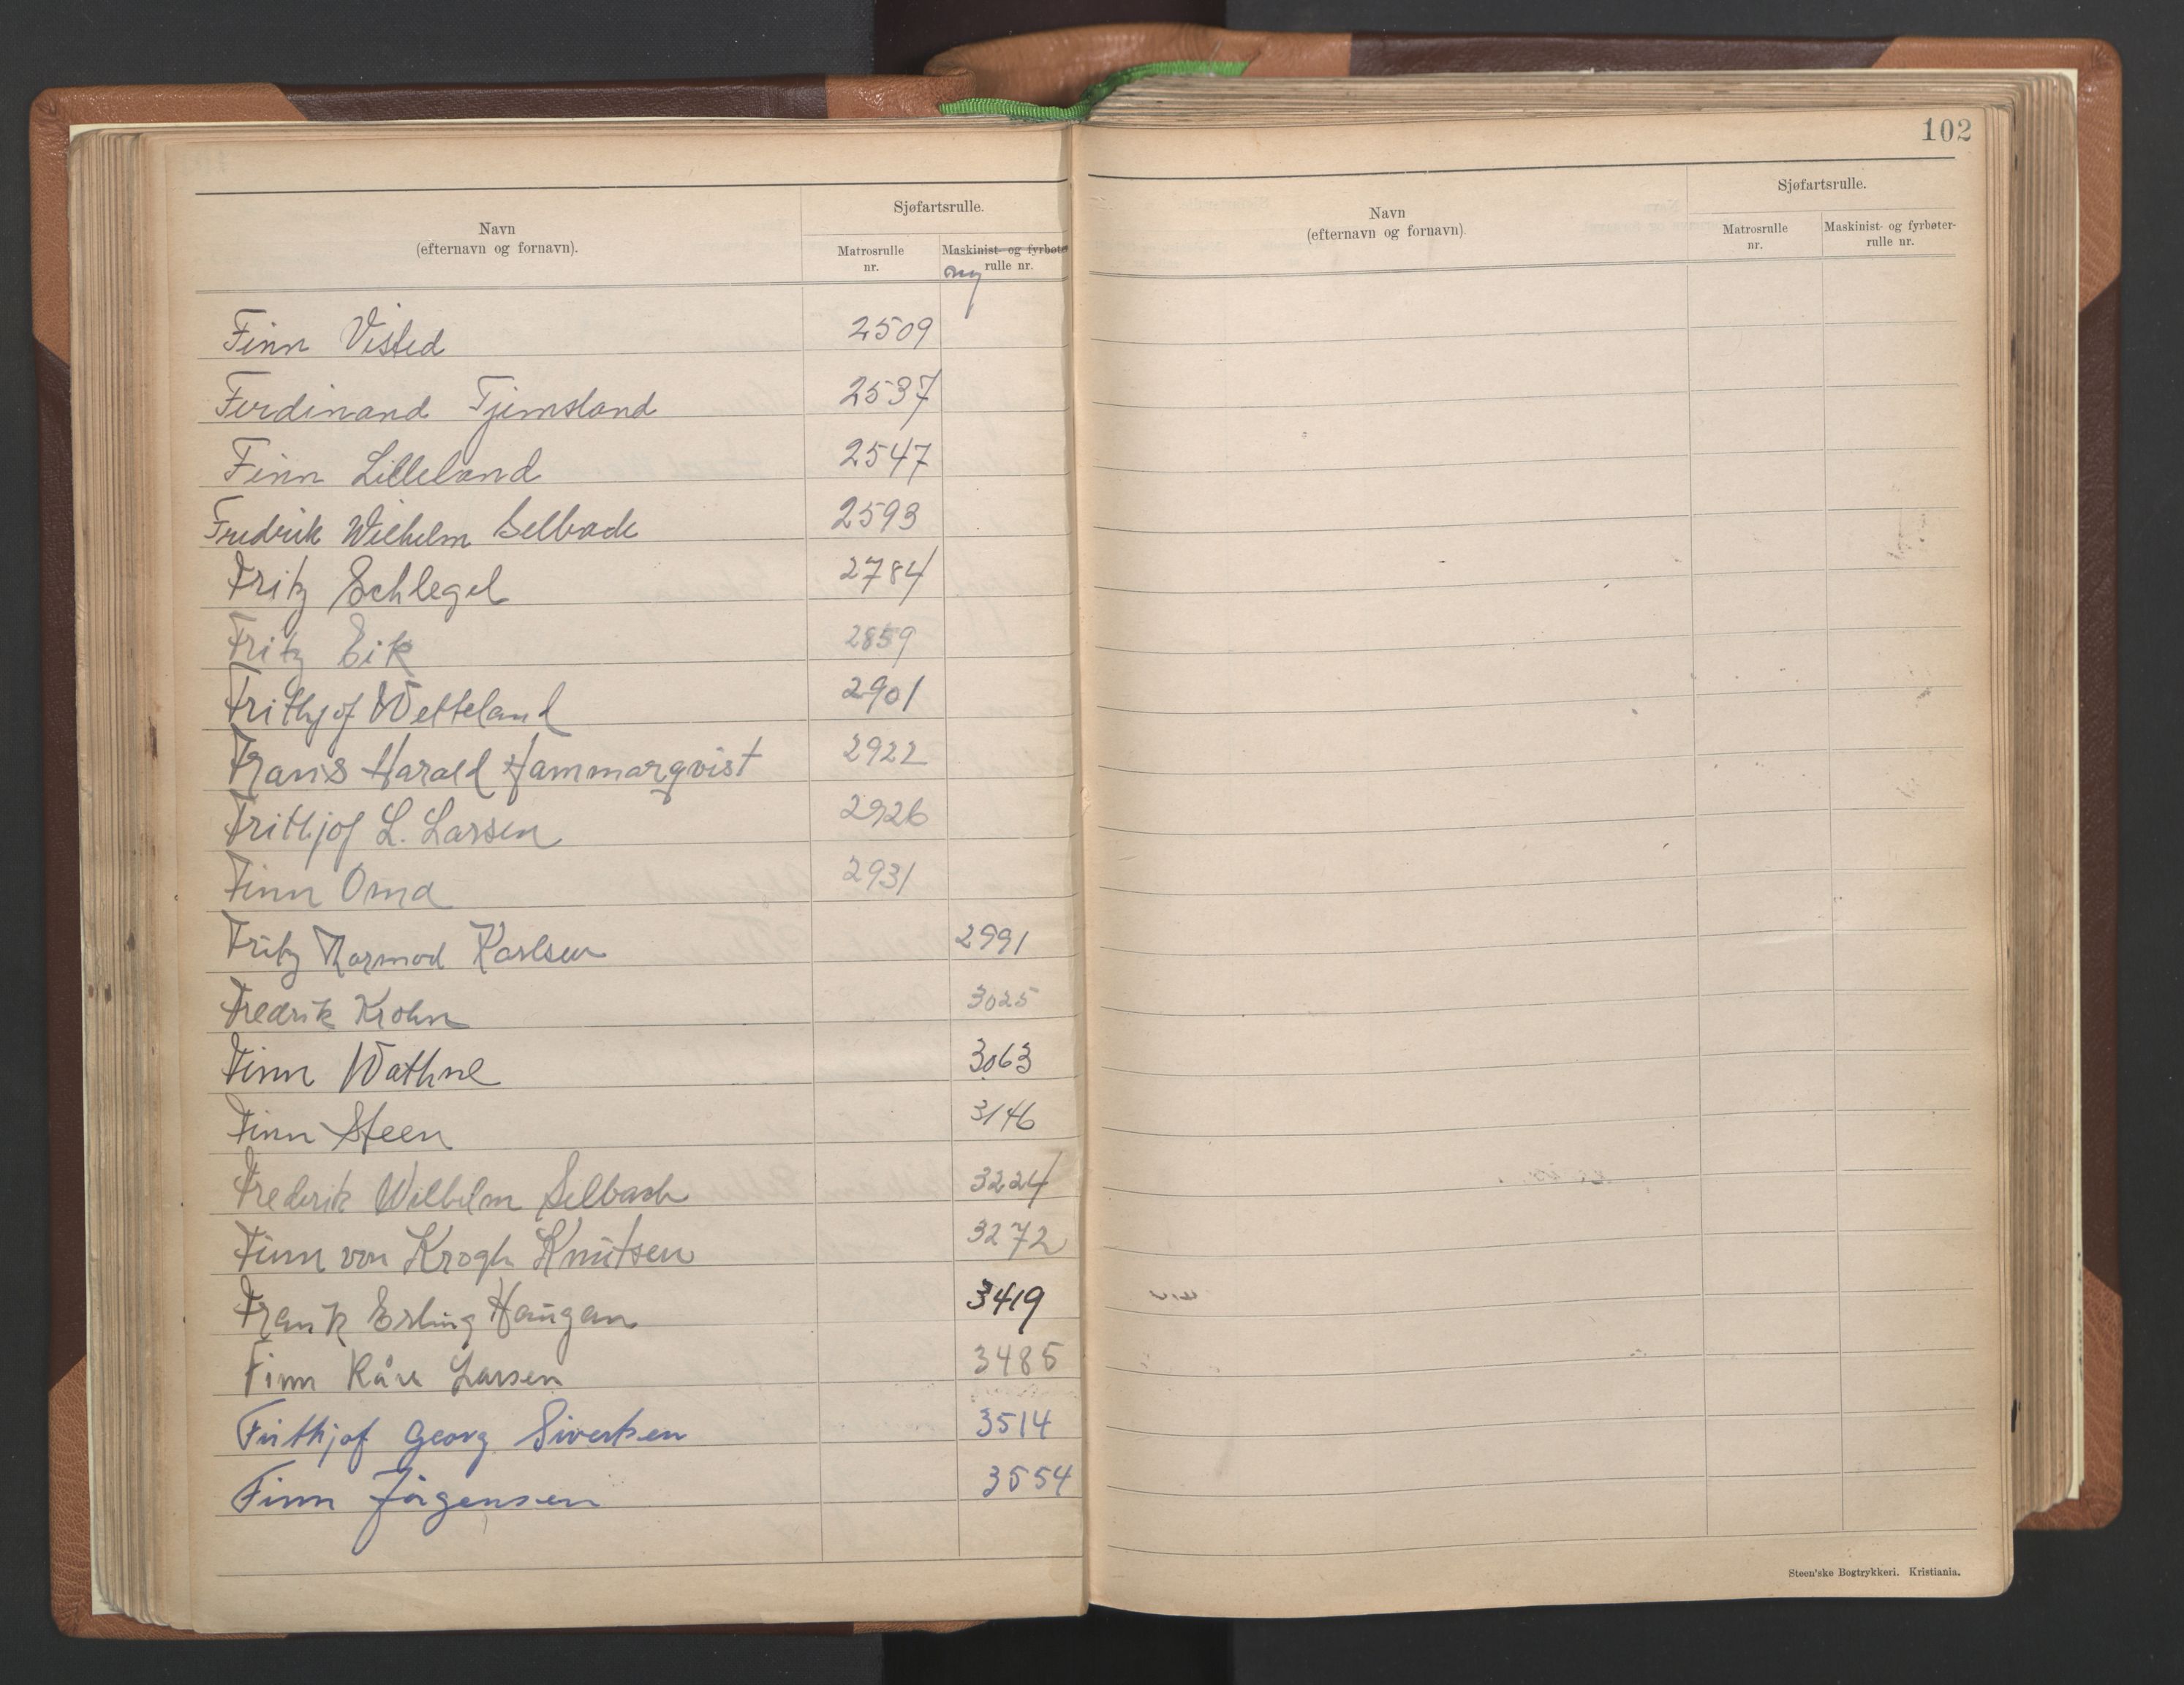 Navn
(efternavn og fornavn).
Sjøfartsrulle.
Matrosrulle
nr.
Maskinist- og fyrbøter
ny rulle nr.
Finn Visted 2509
Ferdinand Tjemsland 2537
Finn Lilleland 2547
Fredrik Wilhelm Selbach 2593
Fritz Schlegel 2784
Fritz Eik 2859
Frithjof Wetteland 2901
Frans Harald Hammarqvist 2922
Frithjof L. Larsen 2926
Finn Oma 2931
Fritz Normod Karlsen 2991
Fredrik Krohn 3025
Finn Wathne 3063
Finn Steen 3146
Frederik Wilhelm Selbach 3224
Finn von Krogh Knutsen 3272
Frank Erling Haugan 3419
Finn Kåre Larsen 3485
Frithjof Georg Sivertsen 3514
Finn Jörgensen 3554
102
Navn
(efternavn og fornavn)
Sjøfartsrulle.
Matrosrulle
nr.
Maskinist- og fyrbøter-
rulle nr.
Steen'ske Bogtrykkeri. Kristiania.